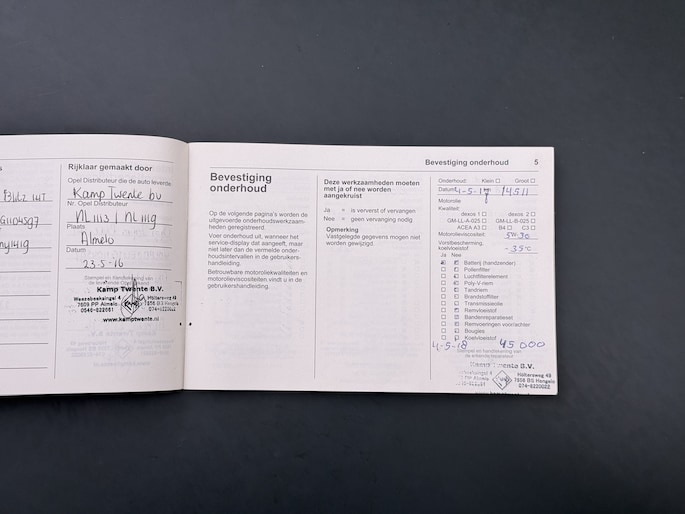 Rijklaar gemaakt door
Opel Distributeur die de auto leverde
Kamp Twente bv
Nr. Opel Distributeur
NL 1113 / NL 1119
Plaats
Almelo
Datum
23-5-'16
Stempel en handtekening van
Kamp Twente B.V.
7609 PP Almelo
0546-822061
Höltersweg 49
074-8220022
www.kamptwente.nl
Bevestiging
onderhoud
Op de volgende pagina's worden de
uitgevoerde onderhoudswerkzaam-
heden geregistreerd.
Voer onderhoud uit, wanneer het
service-display dat aangeeft, maar
niet later dan de vermelde onder-
houdsintervallen in de gebruikers-
handleiding.
Betrouwbare motoroliekwaliteiten en
motorolieviscositeiten vindt u in de
gebruikershandleiding.
Deze werkzaamheden moeten
met ja of nee worden
aangekruist
Ja = is ververst of vervangen
Nee = geen vervanging nodig
Opmerking
Vastgelegde gegevens mogen niet
worden gewijzigd.
Bevestiging onderhoud 5
Onderhoud: Klein Groot
Datum 4-5-17 14511
Motorolie
Kwaliteit:
dexos 1 dexos 2
GM-LL-A-025 GM-LL-B-025
ACEA A3 B4 C3
Motorolieviscositeit: 5W-30
Vorstbescherming,
koelvloeistof -35c
Ja Nee
Batterij (handzender)
Pollenfilter
Luchtfilterelement
Poly-V-riem
Tandriem
Brandstoffilter
Transmissieolie
Remvloeistof
Bandenreparatieset
Remvoeringen voor/achter
Bougies
Koelvloeistof
4-5-18 45000
Stempel en handtekening van
Kamp Twente B.V.
Höltersweg 49
7556 BS Hengelo
074-8220022